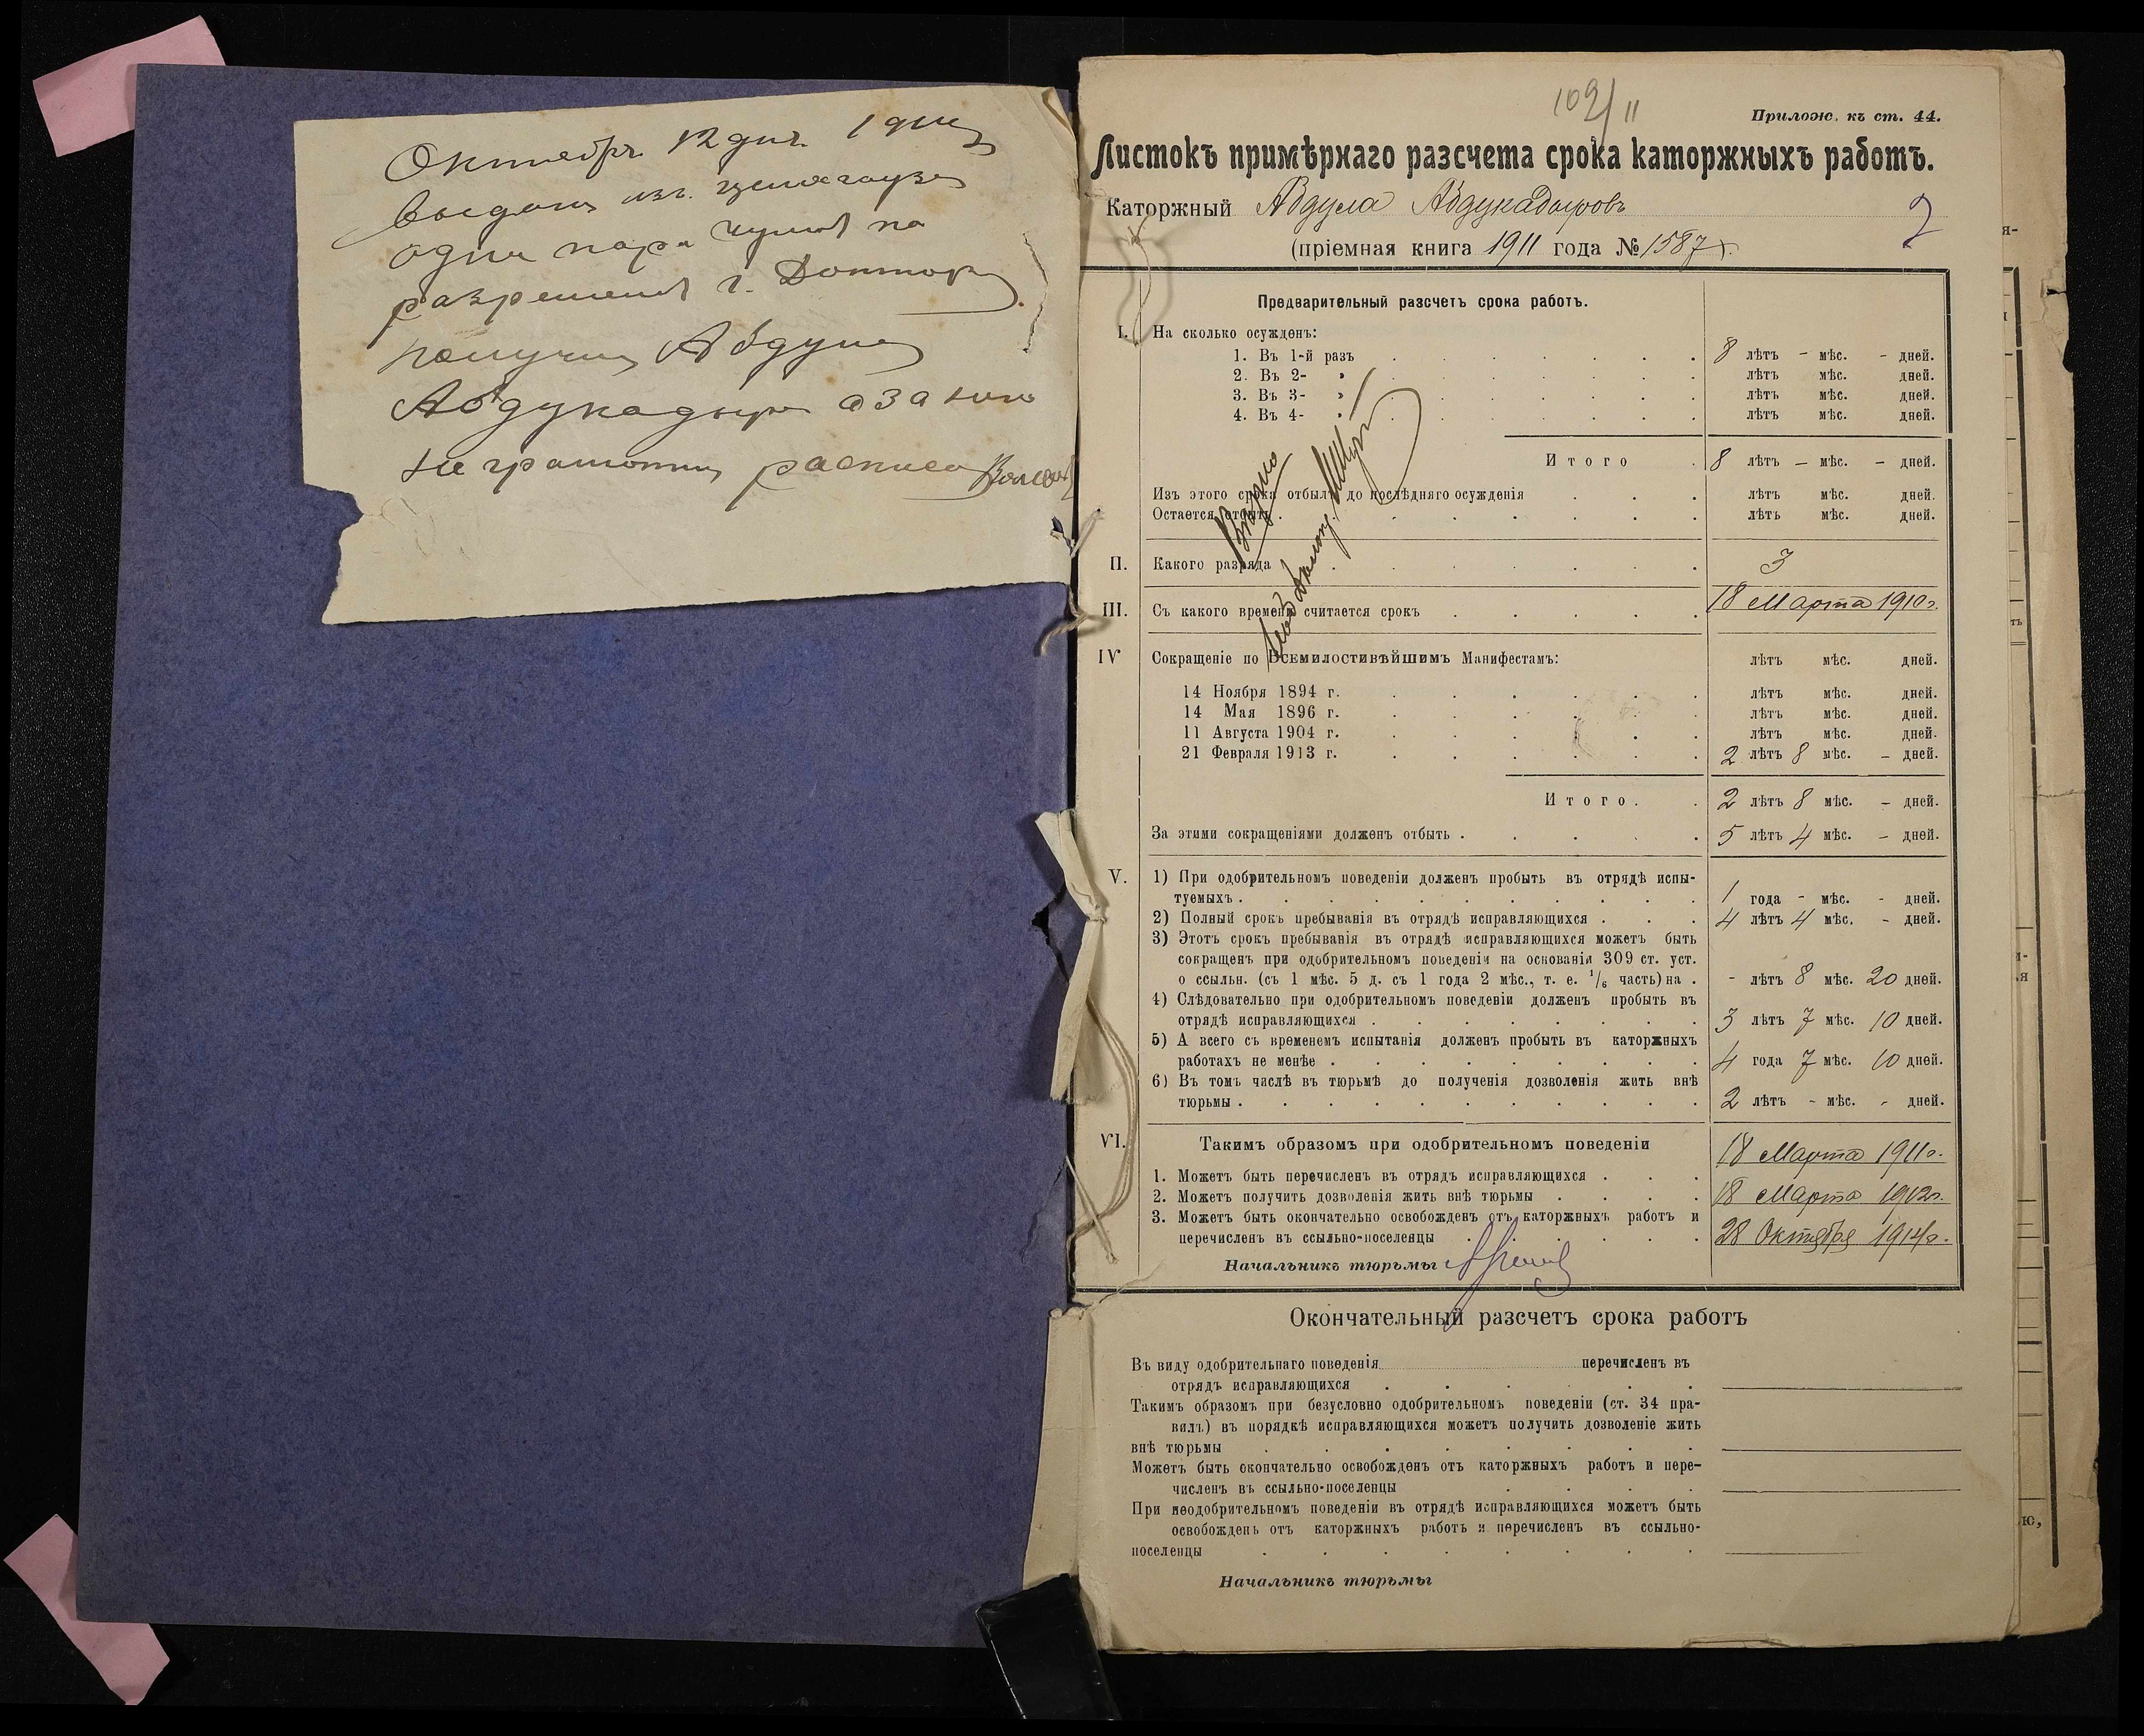 Октебрь 12 дня 1 дня
выдоны изъ
одна пара на
разрешения г. Доктора.
получил Абдула
Абдукадыр а за него
не грамотнъ расписа
102/11
Прилож. къ ст. 44.
Листокъ примѣрнаго разсчета срока каторжныхъ работъ.
Каторжный Абдула Абдукадыровъ
2
(пріемная книга 1911 года № 1587)
Предварительный разсчетъ срока работъ.
I. На сколько осужденъ:
1. Въ 1-й разъ 8 лѣтъ - мѣс. - дней.
2. Въ 2- » лѣтъ мѣс. дней.
3. Въ 3- » лѣтъ мѣс. дней.
4. Въ 4- » лѣтъ мѣс. дней.
Итого 8 лѣтъ - мѣс. - дней.
Изъ этого срока отбылъ до послѣдняго осужденія лѣтъ мѣс. дней.
Остается отбыть лѣтъ мѣс. дней.
Вѣрно
II. Какого разряда 3
III. Съ какого времени считается срокъ 18 Марта 1910г.
IV Сокращеніе по Всемилостивѣйшимъ Манифестамъ: лѣтъ мѣс. дней.
14 Ноября 1894 г. лѣтъ мѣс. дней.
14 Мая 1896 г. лѣтъ мѣс. дней.
11 Августа 1904 г. лѣтъ мѣс. дней.
21 Февраля 1913 г. 2 лѣтъ 8 мѣс. - дней.
Итого. 2 лѣтъ 8 мѣс. - дней.
За этими сокращеніями долженъ отбыть . 5 лѣтъ 4 мѣс. - дней.
V. 1) При одобрительномъ поведеніи долженъ пробыть въ отрядѣ испы-
туемыхъ . 1 года - мѣс. - дней.
2) Полный срокъ пребыванія въ отрядѣ исправляющихся . 4 лѣтъ 4 мѣс. - дней.
3) Этотъ срокъ пребыванія въ отрядѣ исправляющихся можетъ быть
сокращенъ при одобрительномъ поведеніи на основаніи 309 ст. уст.
о ссыльн. (съ 1 мѣс. 5 д. съ 1 года 2 мѣс., т. е. 1/6 часть) на . - лѣтъ 8 мѣс. 20 дней.
4) Слѣдовательно при одобрительномъ поведеніи долженъ пробыть въ
отрядѣ исправляющихся . 3 лѣтъ 7 мѣс. 10 дней.
5) А всего съ временемъ испытанія долженъ пробыть въ каторжныхъ
работахъ не менѣе . 4 года 7 мѣс. 10 дней.
6) Въ томъ числѣ въ тюрьмѣ до полученія дозволенія жить внѣ
тюрьмы . 2 лѣтъ - мѣс. - дней.
VI. Такимъ образомъ при одобрительномъ поведеніи
1. Можетъ быть перечисленъ въ отрядъ исправляющихся . 18 Марта 1911г.
2. Можетъ получить дозволенія жить внѣ тюрьмы . 18 Марта 1912г.
3. Можетъ быть окончательно освобожденъ отъ каторжныхъ работъ и
перечисленъ въ ссыльно-поселенцы 28 Октября 1914г.
Начальникъ тюрьмы
Окончательный разсчетъ срока работъ
Въ виду одобрительнаго поведенія перечисленъ въ
отрядъ исправляющихся
Такимъ образомъ при безусловно одобрительномъ поведеніи (ст. 34 пра-
вилъ) въ порядкѣ исправляющихся можетъ получить дозволеніе жить
внѣ тюрьмы
Можетъ быть окончательно освобожденъ отъ каторжныхъ работъ и пере-
численъ въ ссыльно-поселенцы
При неодобрительномъ поведеніи въ отрядѣ исправляющихся можетъ быть
освобожденъ отъ каторжныхъ работъ и перечисленъ въ ссыльно-
поселенцы
Начальникъ тюрьмы